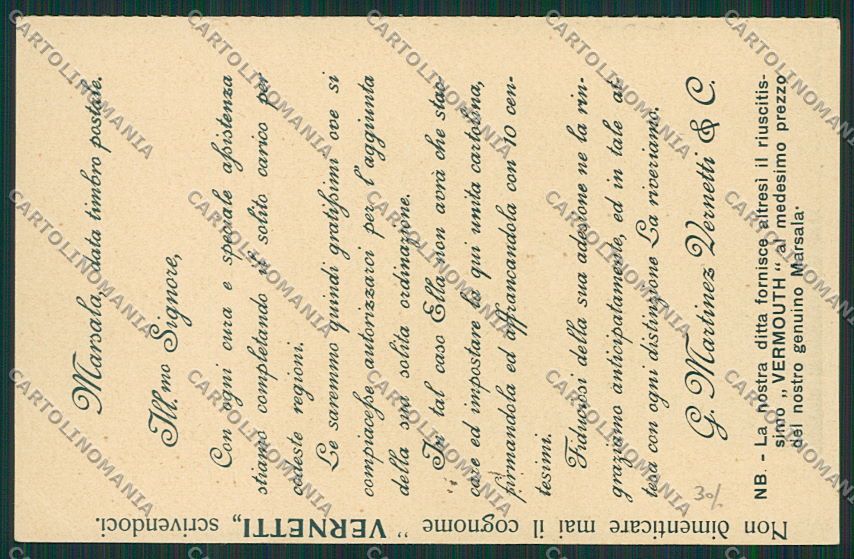 Marsala, data timbro postale.
Ill.mo Signore,
Con ogni cura e speciale assistenza
stiamo completando il solito carico per
codeste regioni.
Le saremmo quindi gratissimi ove si
compiacesse autorizzarci per l'aggiunta
della sua solita ordinazione.
In tal caso Ella non avrà che stac-
care ed impostare la qui unita cartolina,
firmandola ed affrancandola con 10 cen-
tesimi.
Fiduciosi della sua adesione ne la rin-
graziamo anticipatamente, ed in tale at-
tesa con ogni distinzione La riveriamo.
G. Martinez Vernetti & C.
NB. - La nostra ditta fornisce altresì il riuscitis-
simo „VERMOUTH“ al medesimo prezzo
del nostro genuino Marsala.
Non dimenticare mai il cognome “VERNETTI„ scrivendoci.
30%
CARTOLINOMANIA